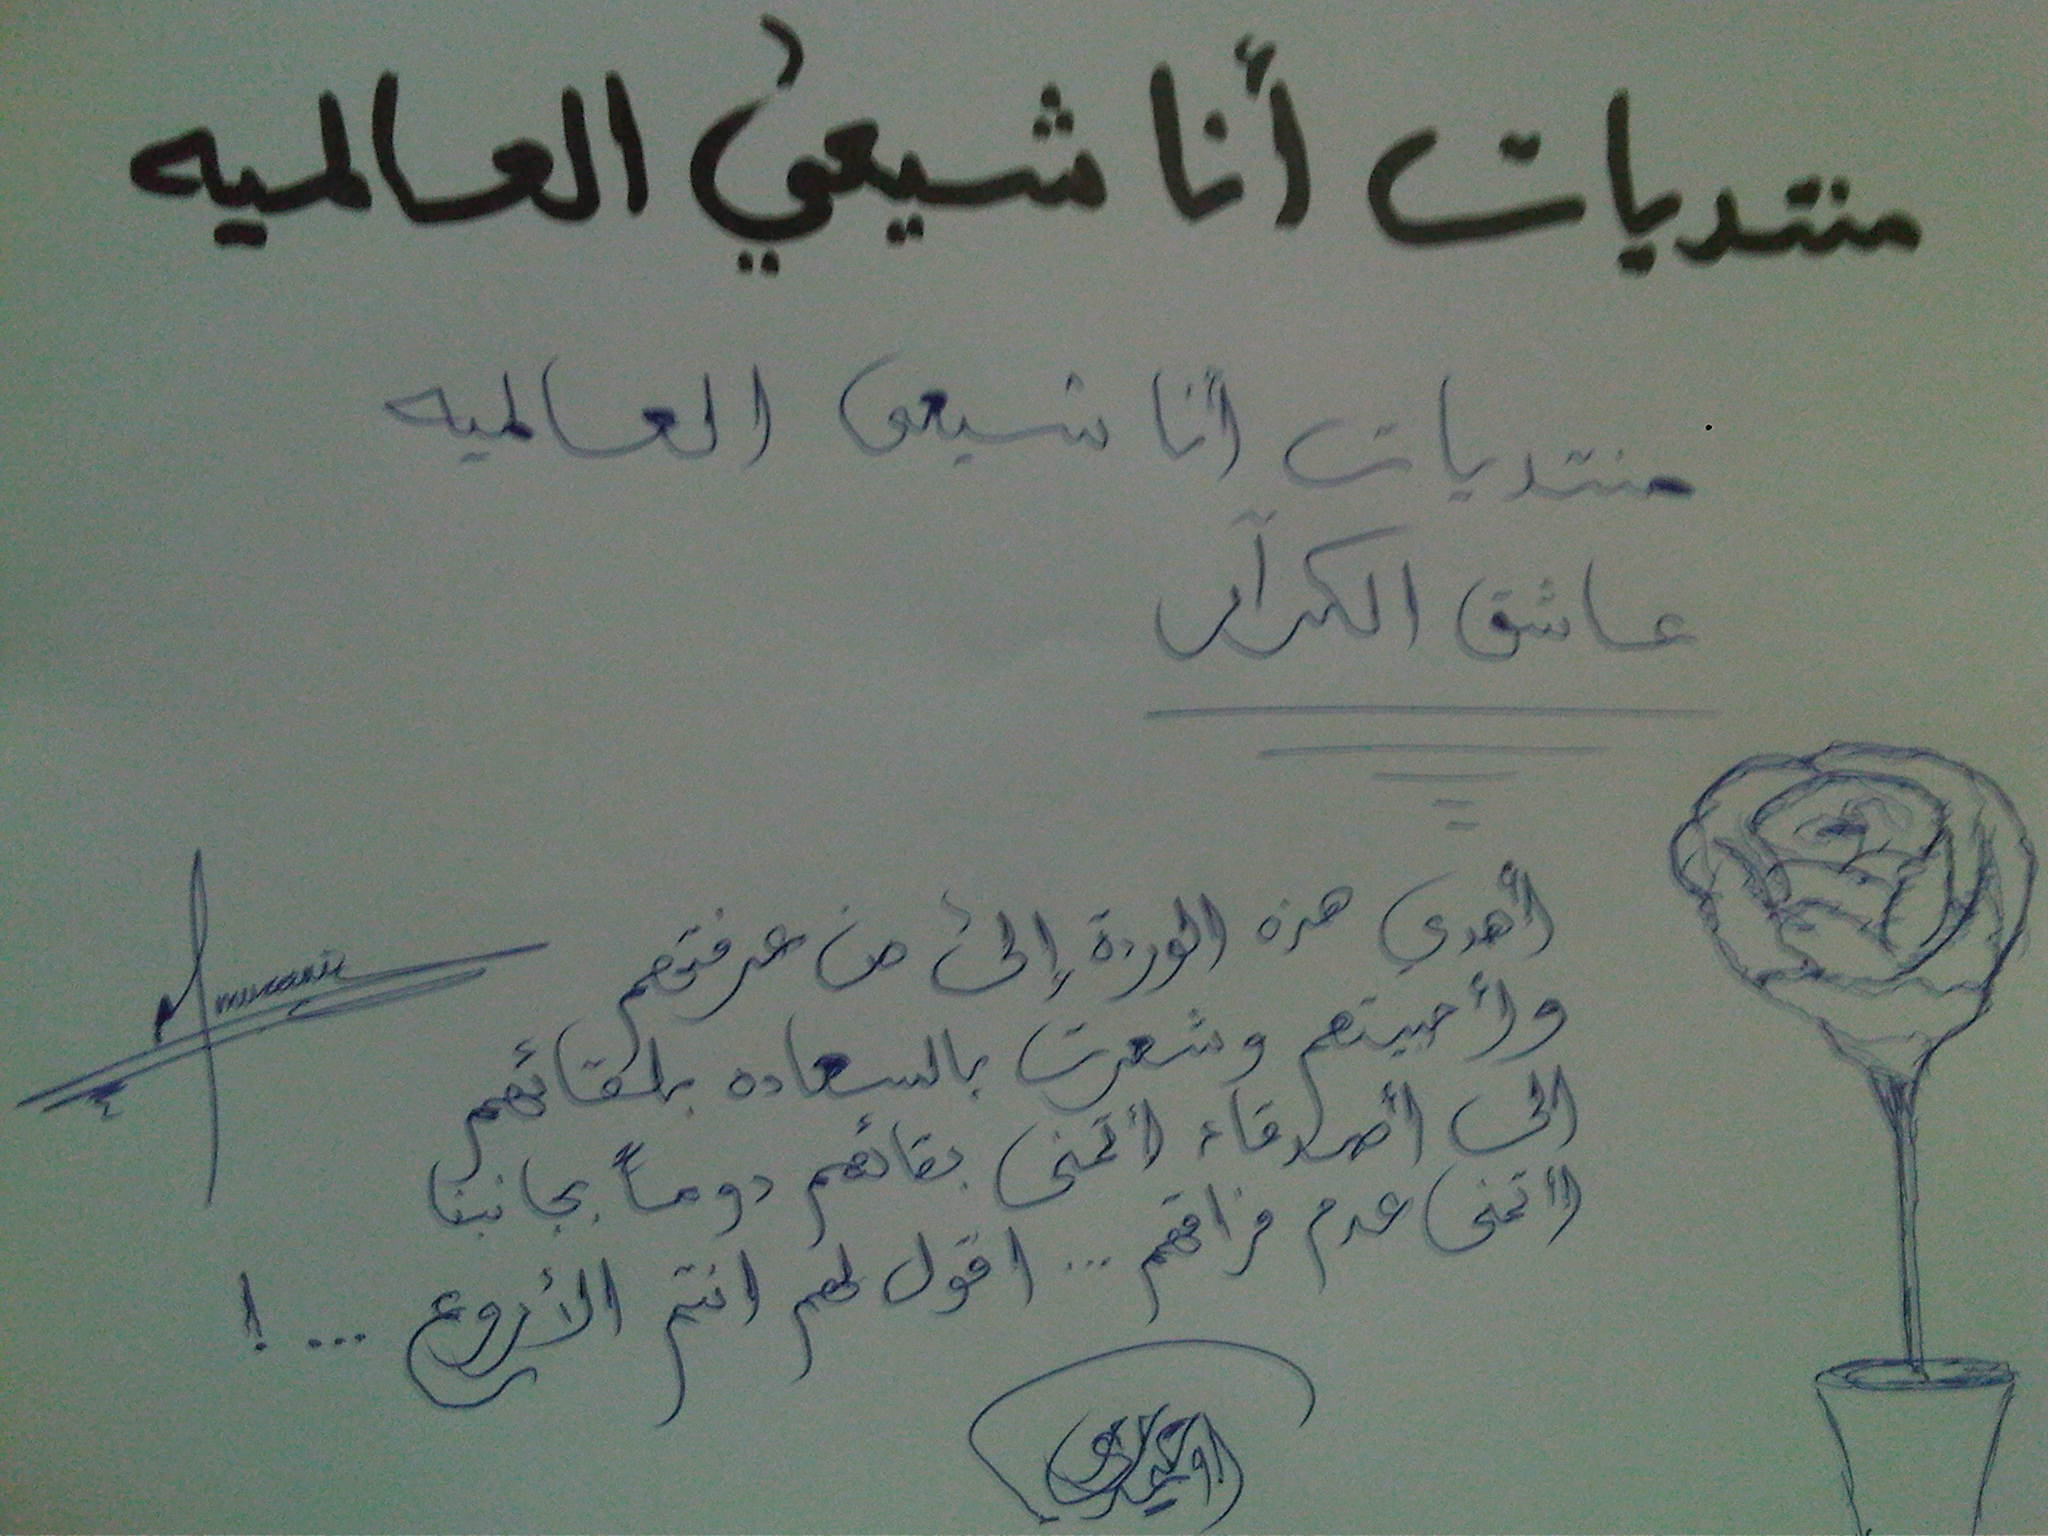 منتديات أنا شيعي العالميه
منتديات أنا شيعى العالميه
عاشق الكرآر
أهدي هذه الوردة إلى من عرفتهم
وأحببتهم وشعرت بالسعاده بلقائهم
الى أصدقاء لأتمنى بقائهم دوماً بجانبنا
لأتمنى عدم فراقهم ... اقول لهم انتم الأروع ... !